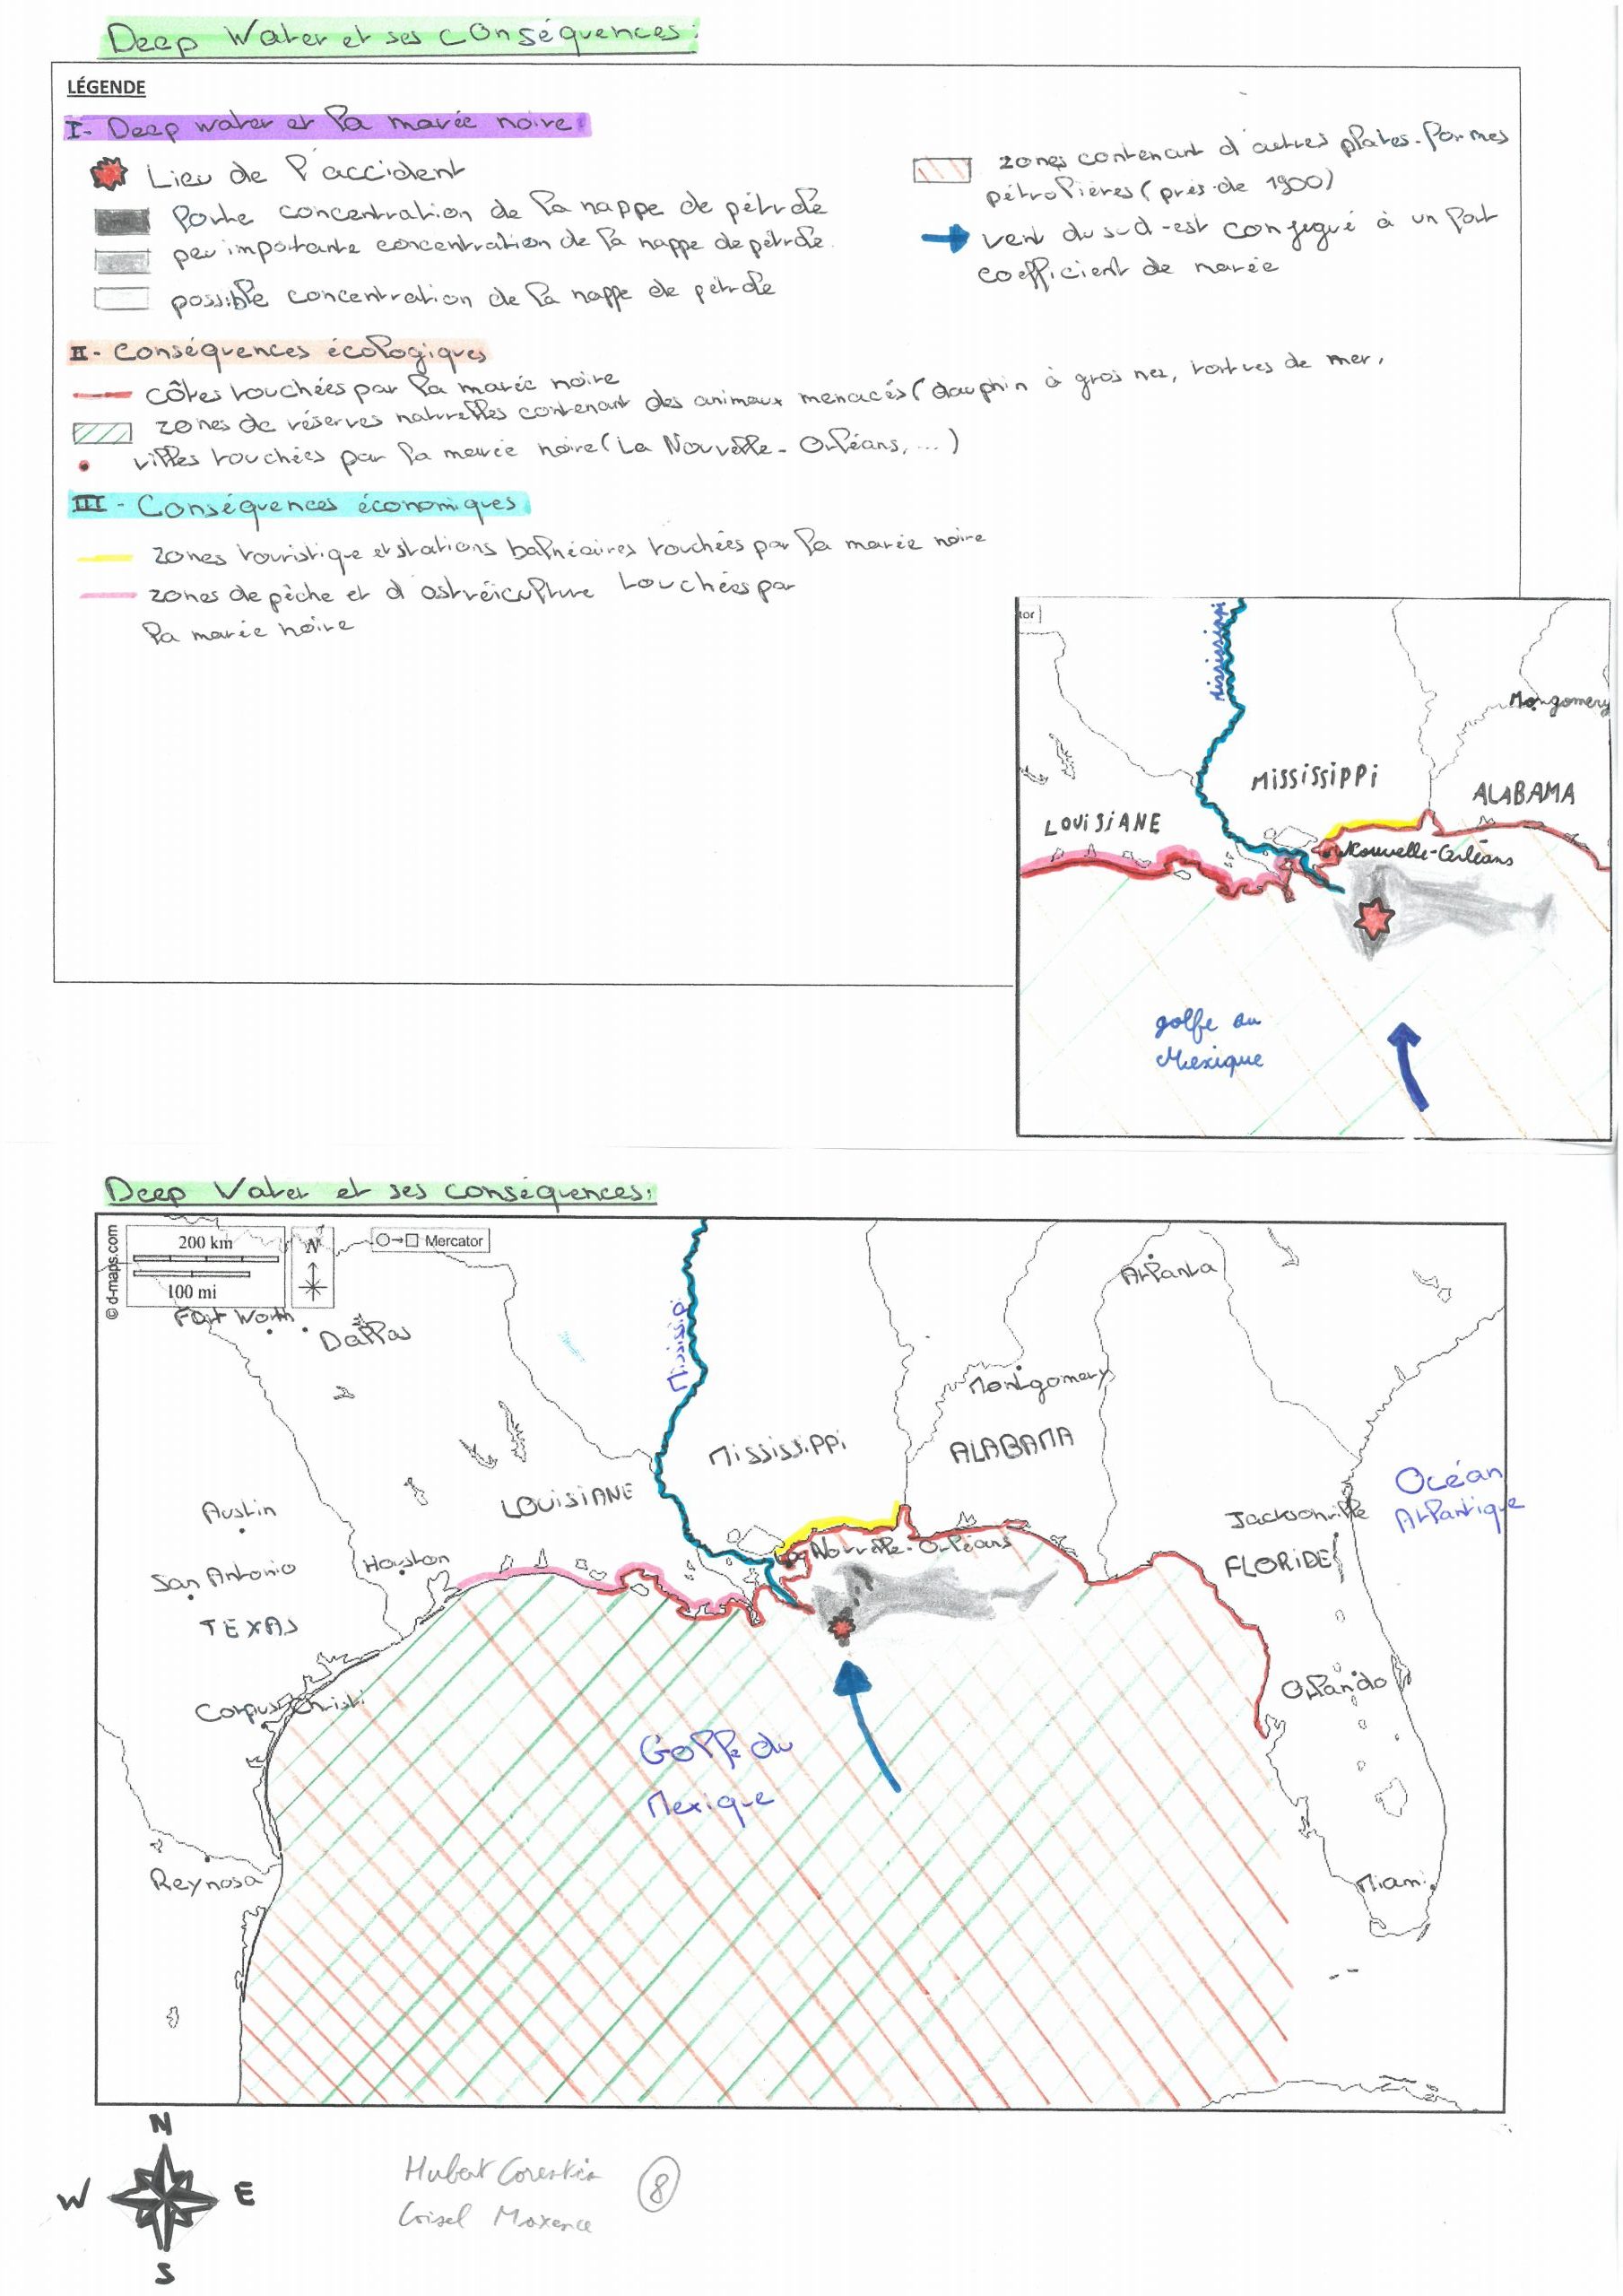 Deep Water et ses conséquences:
LÉGENDE
I- Deep water et la marée noire:
Lieu de l'accident
forte concentration de la nappe de pétrole
peu importante concentration de la nappe de pétrole.
possible concentration de la nappe de pétrole
zones contenant d'autres plates-formes
pétrolières (près de 1900)
vent du sud-est conjugué à un fort
coefficient de marée
II- Conséquences écologiques
côtes touchées par la marée noire
zones de réserves naturelles contenant des animaux menacés (dauphin à gros nez, tortues de mer,
villes touchées par la marée noire (La Nouvelle-Orléans, ...)
III- Conséquences économiques
zones touristique et stations balnéaires touchées par la marée noire
zones de pêche et d'ostréiculture touchées par
la marée noire
tor
Mississippi
Montgomery
Mississippi
ALABAMA
LOUISIANE
Nouvelle-Orléans
golfe du
Mexique
Deep Water et ses conséquences:
© d-maps.com
200 km
100 mi
N
Mercator
Fort Worth
Dallas
Mississipi
Atlanta
Montgomery
Mississippi
ALABAMA
LOUISIANE
Océan
Atlantique
Austin
Jacksonville
Nouvelle-Orléans
Houston
FLORIDE
San Antonio
TEXAS
Orlando
Corpus Christi
Golfe du
Mexique
Reynosa
Miami
N
W
E
S
Hubert Corentin
8
Maxence